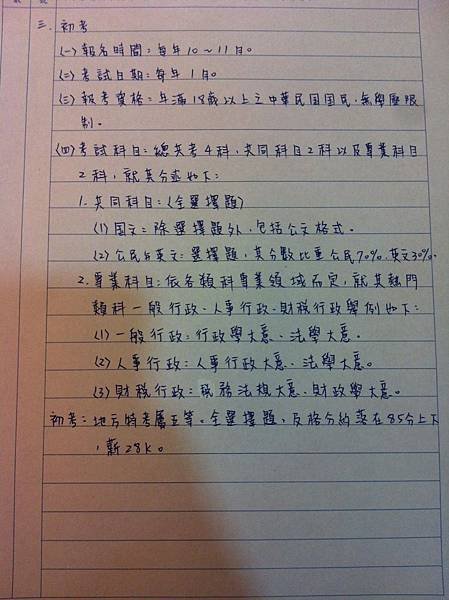 三. 初考
(一) 報名時間：每年10～11月。
(二) 考試日期：每年1月。
(三) 報考資格：年滿18歲以上之中華民国国民，無學歷限
制。
(四) 考試科目：總共考4科，共同科目2科以及專業科目
2科，就其分述如下：
1. 共同科目：(全選擇題)
(1) 国文：除選擇題外，包括公文格式。
(2) 公民与英文：選擇題，其分數比重公民70%，英文30%。
2. 專業科目：依各類科專業領域而定，就其熱門
類科一般行政、人事行政、財稅行政舉例如下：
(1) 一般行政：行政學大意、法學大意。
(2) 人事行政：人事行政大意、法學大意。
(3) 財稅行政：稅務法規大意、財政學大意。
初考：地方特考屬五等。全選擇題，及格分約落在85分上下
，薪28K。